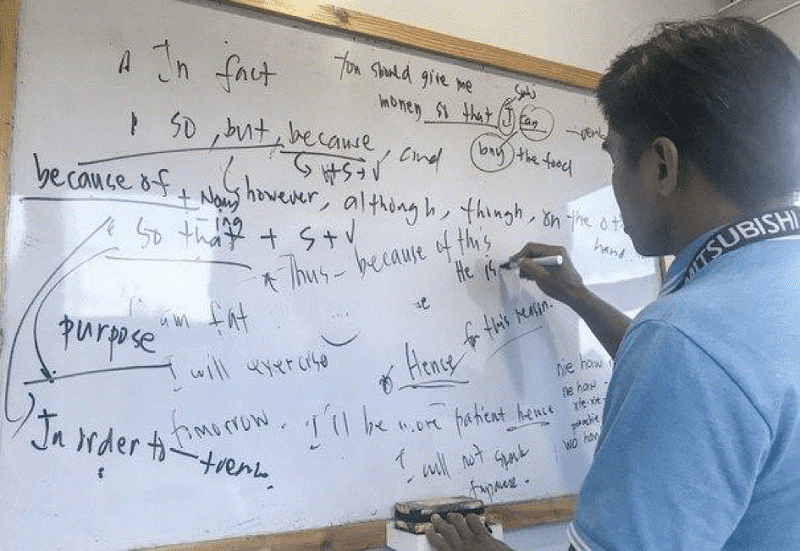 In fact
You should give me
money so that I can
subj
verb
buy the food
so, but, because, and
+ S + V
because of + Noun
ing
however, although, though, on the ot
hand.
so that + S + V
Thus - because of this
He is
I am fat
purpose
I will exercise
tomorrow.
Hence
for this reason.
In order to
I'll be more patient hence
I will not speak
nie haw
ne haw
xie-xie
wo han
MITSUBISHI